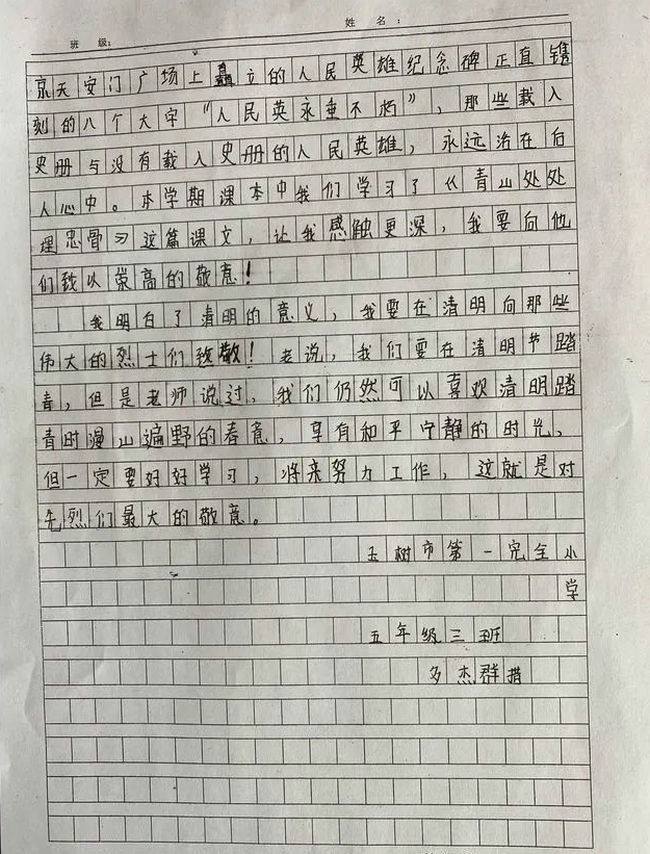 姓 名 ：
班 级：
京天安门广场上矗立的人民英雄纪念碑正直镌
刻的八个大字“人民英永垂不朽”，那些载入
史册与没有载入史册的人民英雄，永远活在后
人心中。本学期课本中我们学习了《青山处处
理忠骨》这篇课文，让我感触更深，我要向他
们致以崇高的敬意！
我明白了清明的意义，我要在清明向那些
伟大的烈士们致敬！老说，我们要在清明节踏
青，但是老师说过，我们仍然可以喜欢清明踏
青时漫山遍野的春意，享有和平宁静的时光、
但一定要好好学习，将来努力工作，这就是对
先烈们最大的敬意。
玉树市第一完全小
学
五年级三班
多杰群措